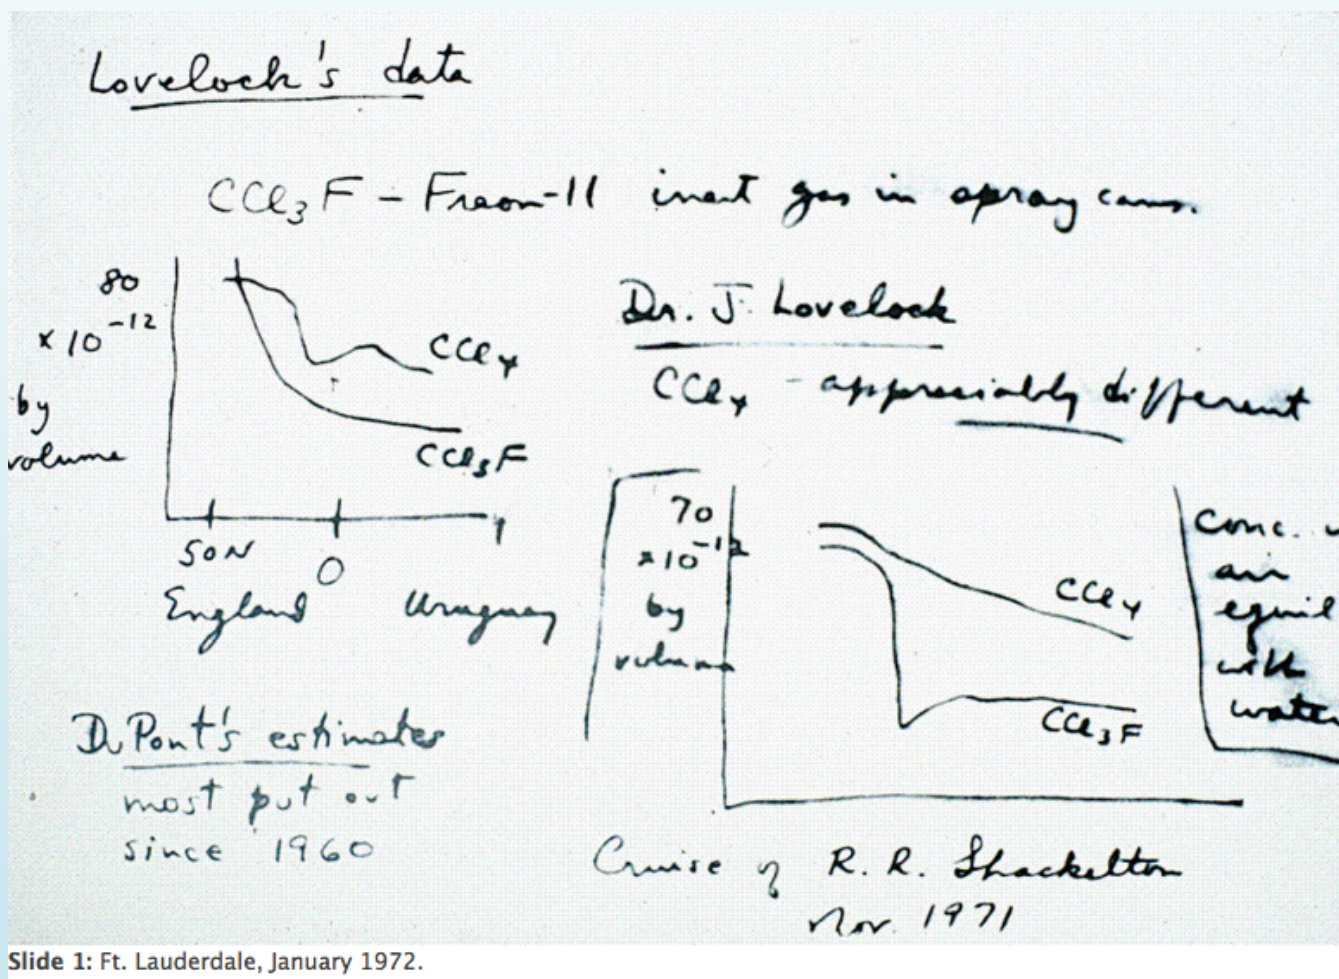 Lovelock's data
CCl3F - Freon-11 inert gas in spray cans.
80
x 10^-12
by
volume
CCl4
CCl3F
50N
0
England Uruguay
Dr. J. Lovelock
CCl4 - appreciably different
70
x 10^-12
by
volume
CCl4
CCl3F
conc. 
air
equil
with
water
DuPont's estimates
most put out
since 1960
Cruise of R. R. Shackelton
Nov. 1971
Slide 1: Ft. Lauderdale, January 1972.